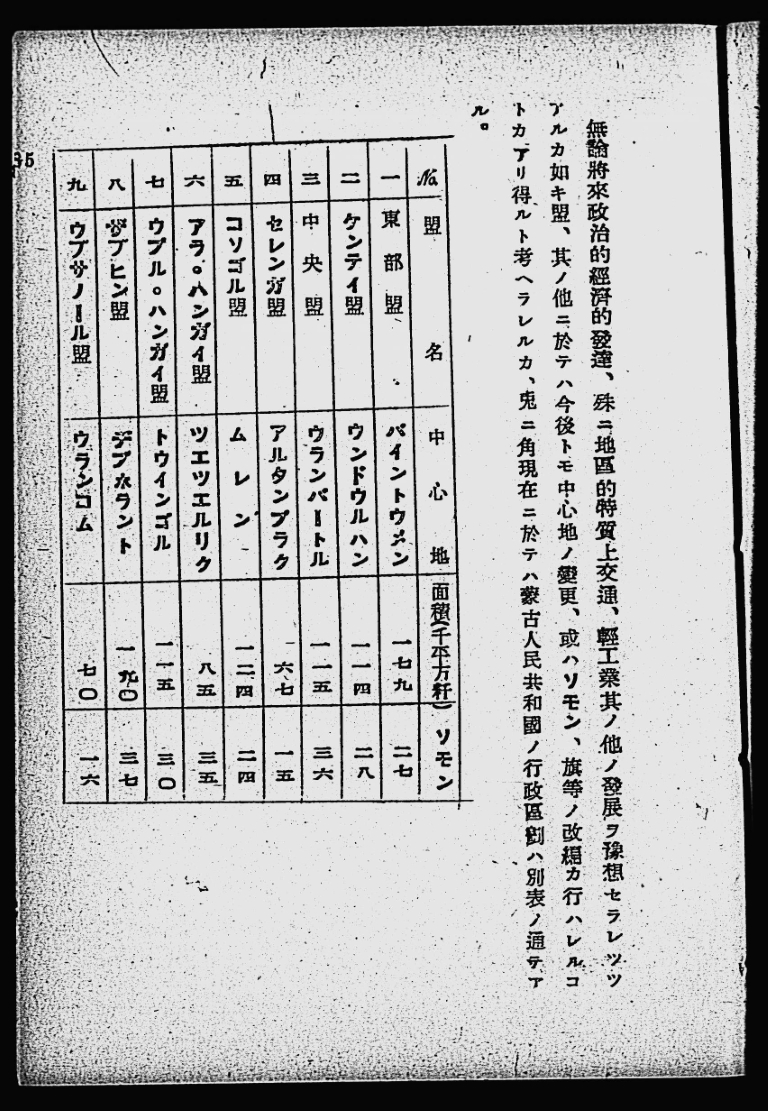 無論將來政治的經濟的發達、殊ニ地區的特質上交通、輕工業其ノ他ノ發展ヲ豫想セラレツツ
アルカ如キ盟、其ノ他ニ於テハ今後トモ中心地ノ變更、或ハソモン、旗等ノ改編カ行ハレルコ
トカアリ得ルト考ヘラレルカ、兎ニ角現在ニ於テハ蒙古人民共和國ノ行政區劃ハ別表ノ通テア
ル。
No. 盟名 中心地 面積(千平方粁) ソモン
一 東部盟 バイントウメン 一七九 二七
二 ケンテイ盟 ウンドウルハン 一一四 二八
三 中央盟 ウランバートル 一一五 三六
四 セレンガ盟 アルタンブラク 六七 一五
五 コソゴル盟 ムレン 一二四 二四
六 アラ。ハンガイ盟 ツエツエルリク 八五 三五
七 ウブル。ハンガイ盟 トウインゴル 一一五 三〇
八 ザブヒン盟 ヂブホラント 一九〇 三七
九 ウブサノール盟 ウランゴム 七〇 一六
35